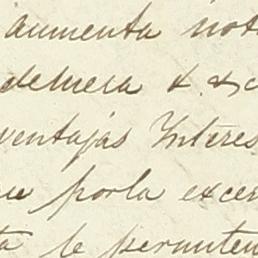 aumenta not
& &c
ventajas Interes
porla exce
le permiten